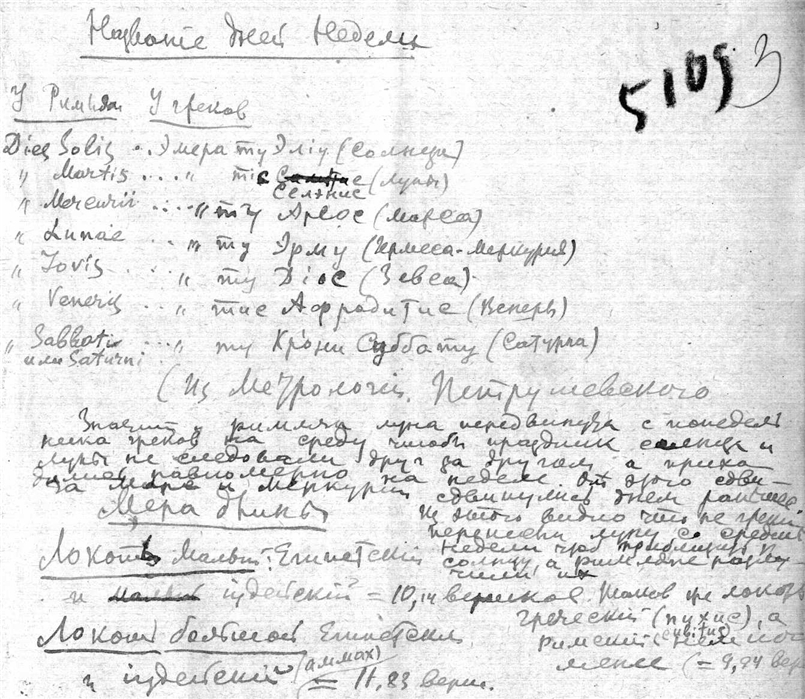 Названіе дней Недели
5109 3
У Римлян У греков
Dies Solis .. Эмера ту Эліу (Солнца)
" Martis .... " тис Селэнис (Луны)
" Mercurii .... " ту Ареос (Марса)
" Lunae ... " ту Эрму (Гермеса-Меркурия)
" Jovis ... " ту Діос (Зевса)
" Veneris ... " тис Афродитис (Венеры)
" Sabbati ... " ту Крони Суббату (Сатурна)
или Saturni
(Из Метрологіи Петрушевского
Значит у римлян луна передвинута с понедель
ника греков на среду чтобы праздник солнца и
луны не следовали друг за другом а прихо
дились равномерно на неделе. От этого сдви-
за Марс и Меркурій сдвинулись днем раньше.
Из этого видно что не греки
перенесли луну со средины
недели чтоб приблизить к
солнцу, а римляне разлу-
чили их
Мера длины
Локоть малый: Египетскій
и іудейскій = 10,14 вершков. Таков же локоть
греческій (пухис), а
римскій (cubitus) немного
менее (= 9,94 верш
Локоть большой Египетскій
и іудейскій (аммах) = 11,83 верш.